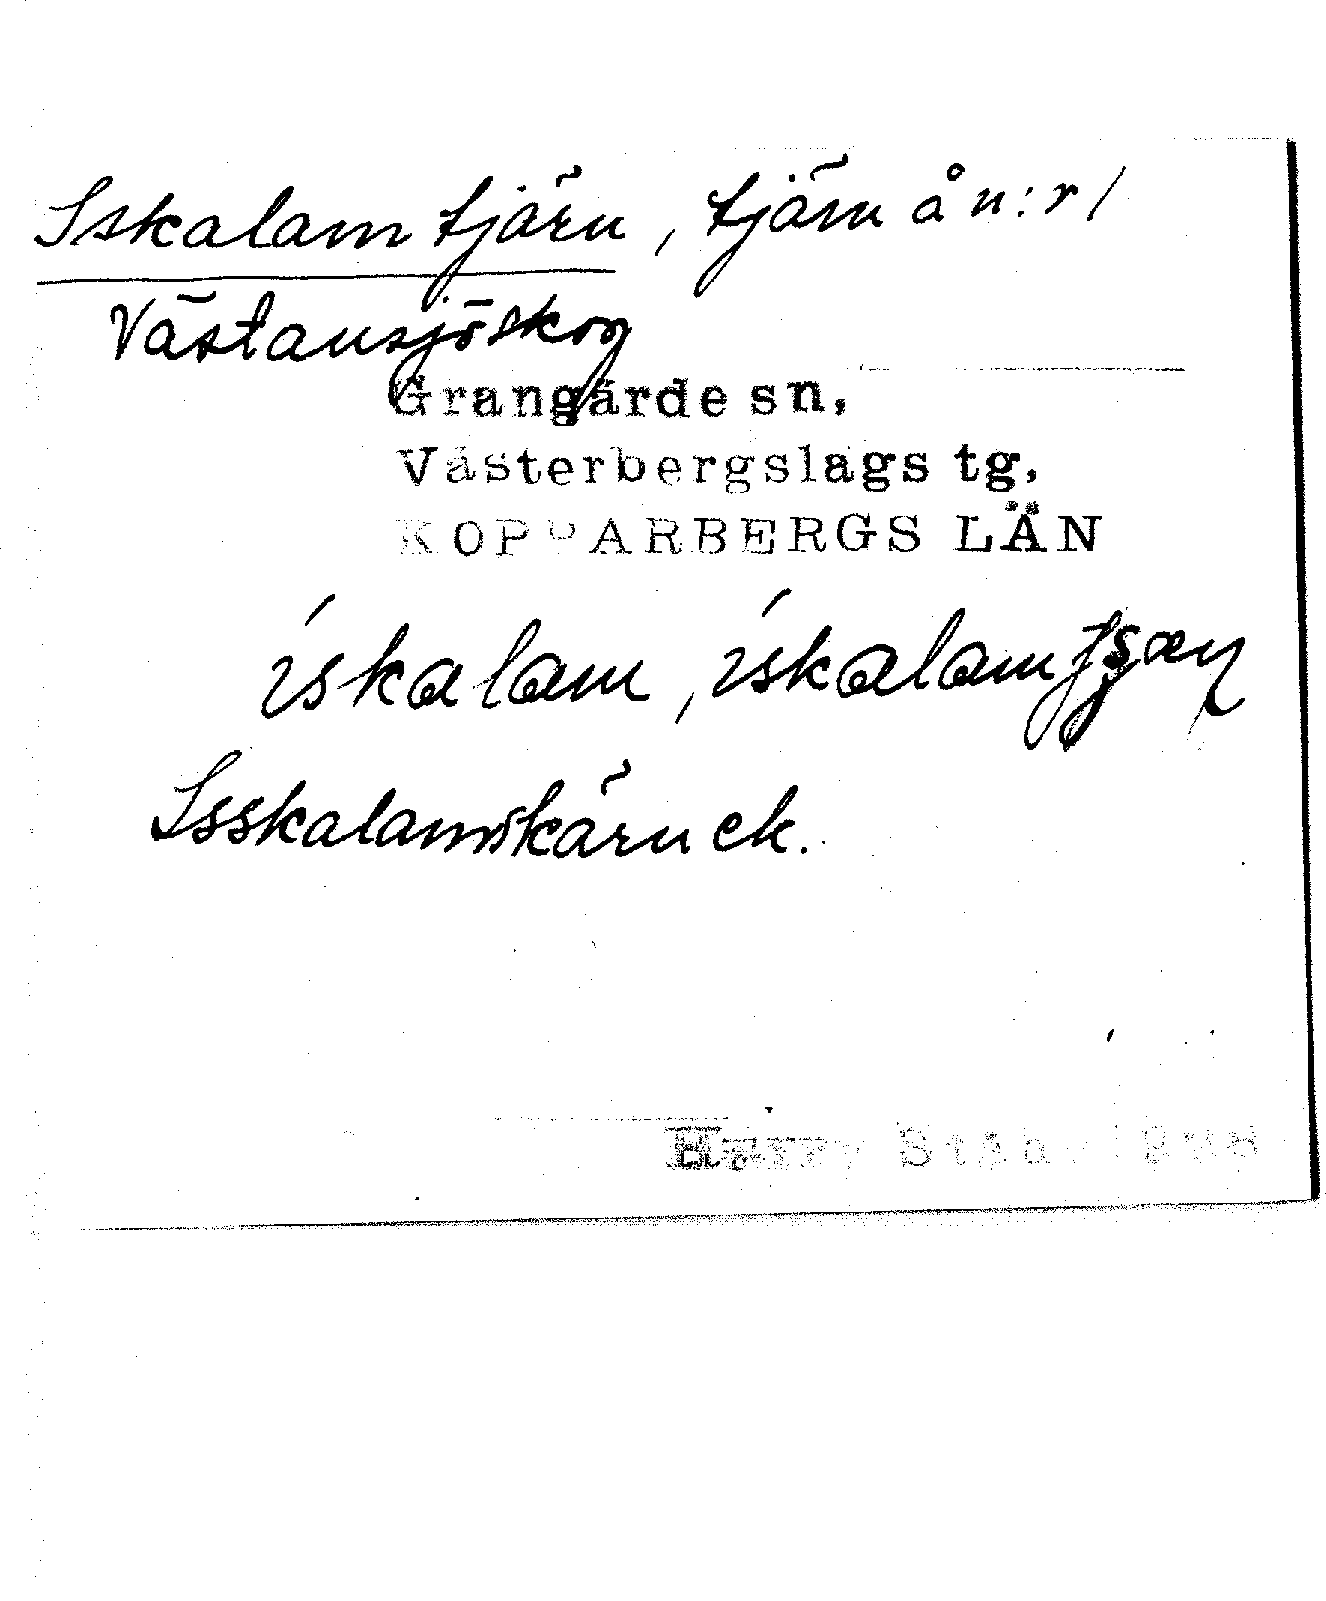 Iskalam tjärn, tjärn å n:r 1
Västansjöskog
Grangärde sn,
Västerbergslags tg,
KOPPARBERGS LÄN
ískalam, ískalam
Isskalamskärn ek.
Harry Ståhl